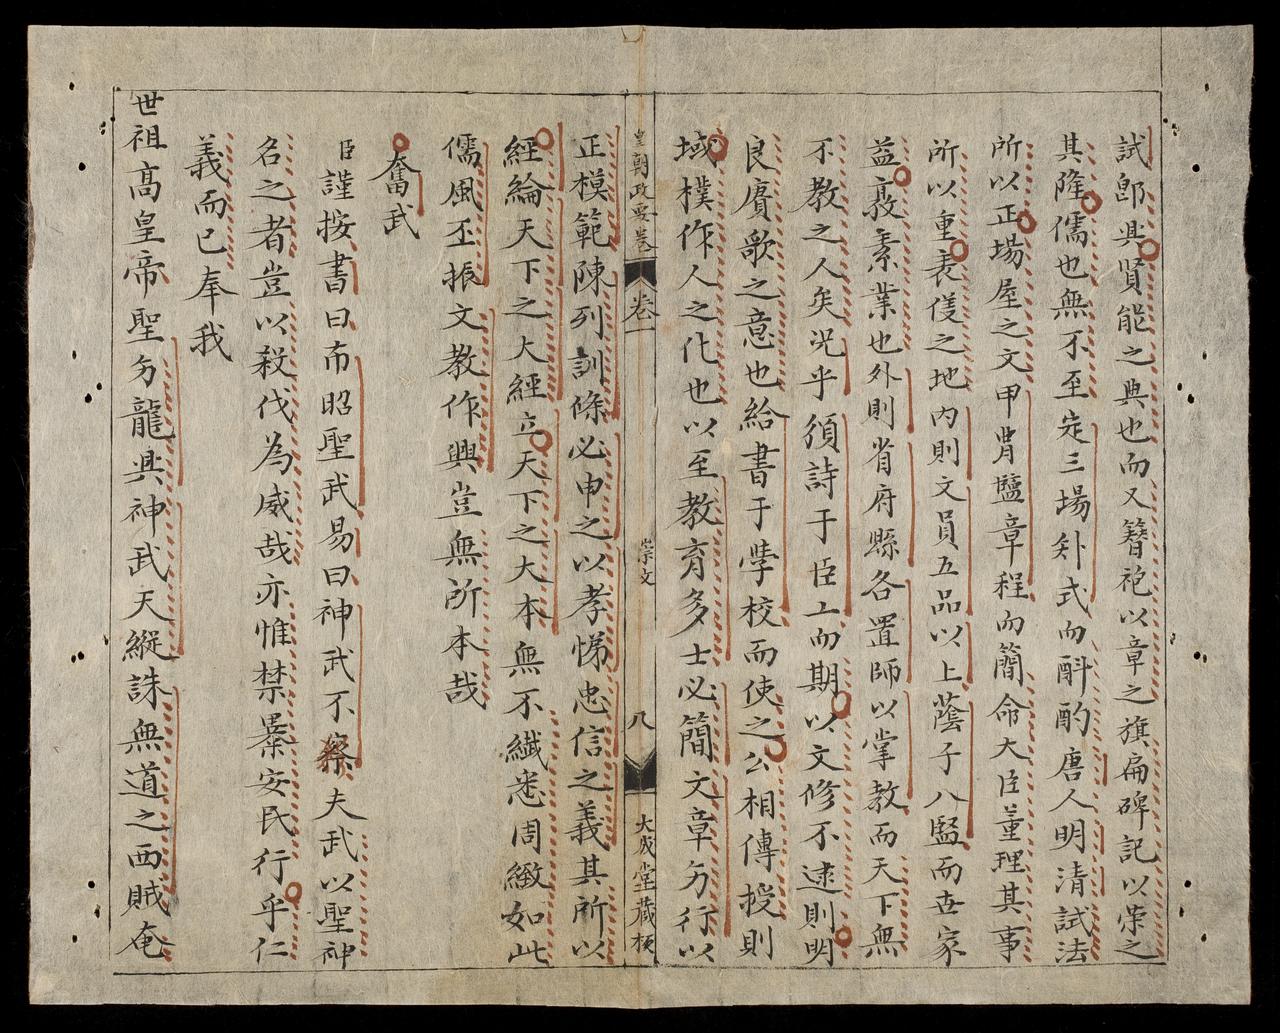 試郎興賢能之典也而又簪袍以章之旗扁碑記以荣之
其隆儒也無不至定三場弁式而酙酌唐人明清試法
所以正場屋之文申胄監章程而簡命大臣董理其事
所以重表儀之地内則文員五品以上蔭子入監而世家
益敦素業也外則省府縣各置師以掌教而天下無
不教之人矣况乎頒詩于臣工而期以文修不逮則明
良賡歌之意也給書于學校而使之公相傳授則
棫樸作人之化也以至教育多士必簡文章方行以
皇朝政要卷 卷一 崇文 八 大成堂藏板
正模範陳列訓條必申之以孝悌忠信之義其所以
經綸天下之大經立天下之大本無不纖悉周緻如此
儒風丕振文教作興豈無所本哉
奮武
臣謹按書曰布昭聖武易曰神武不殺夫武以聖神
名之者豈以殺伐為威哉亦惟禁暴安民行乎仁
義而已奉我
世祖高皇帝聖方龍興神武天縱誅無道之西賊奄